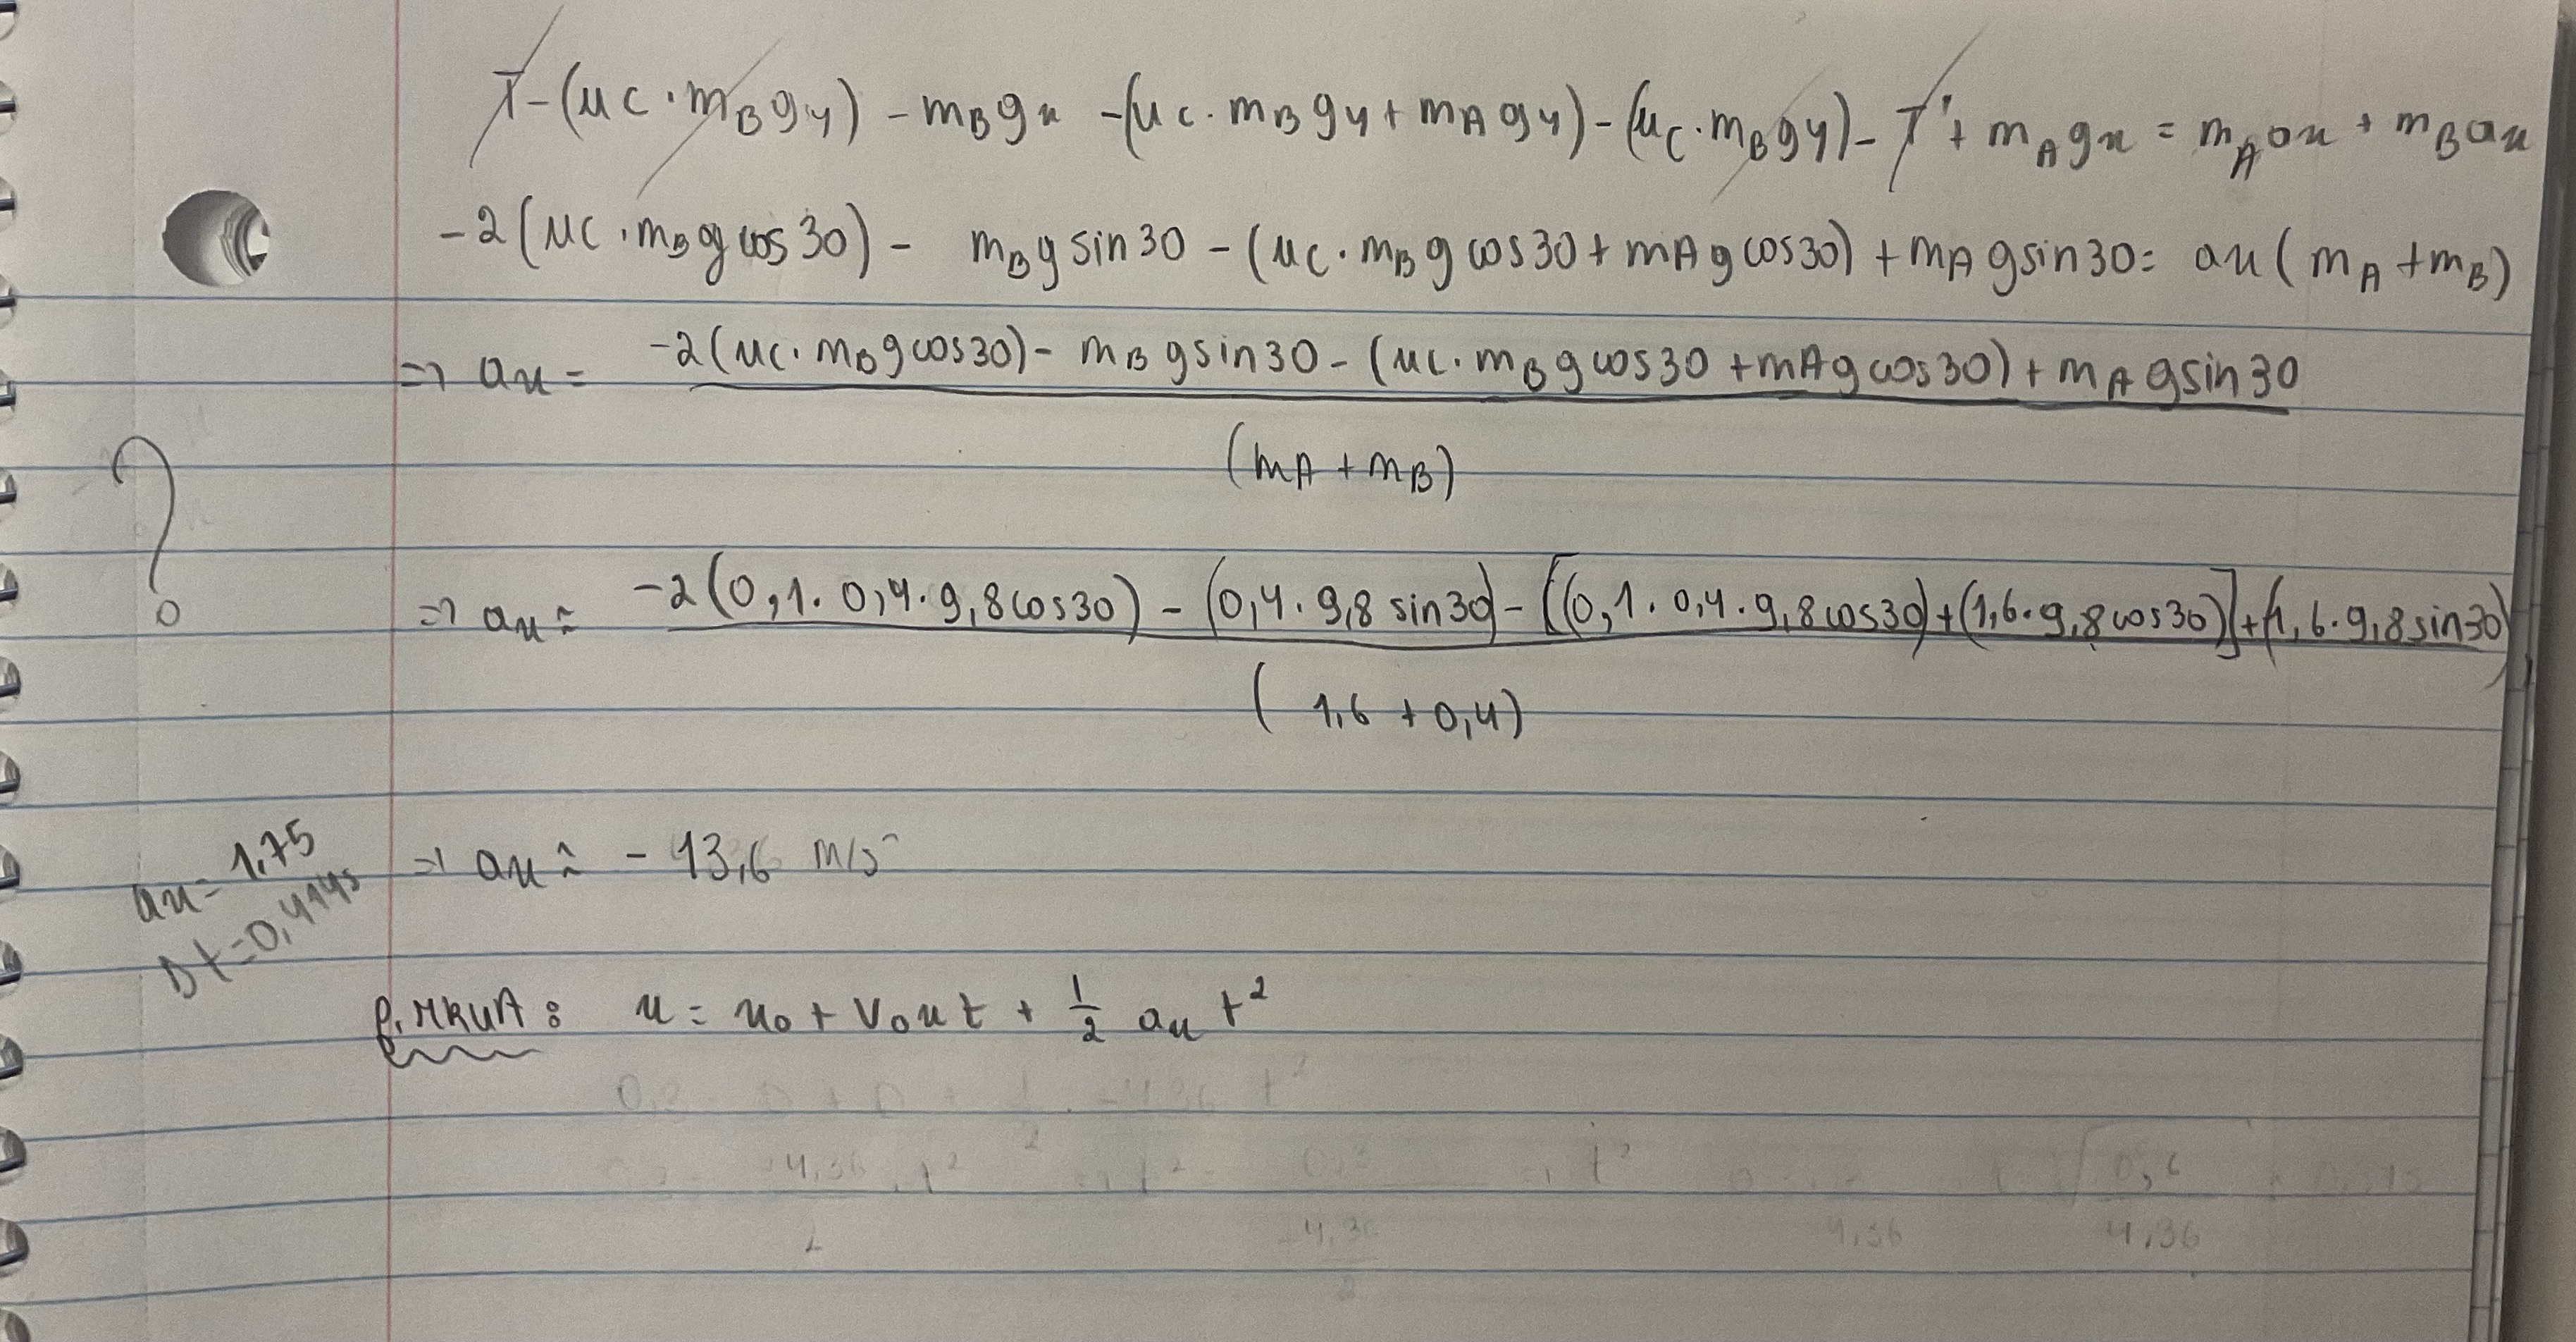 T - (μc · mBgy) - mBgx - (μc · mBgy + mAgy) - (μc · mBgy) - T' + mAgx = mAax + mBax
-2(μc · mBgcos30) - mBgsin30 - (μc · mBgcos30 + mAgcos30) + mAgsin30 = ax(mA + mB)
=> ax = -2(μc · mBgcos30) - mBgsin30 - (μc · mBgcos30 + mAgcos30) + mAgsin30
(mA + mB)
?
=> ax = -2(0,1 · 0,4 · 9,8cos30) - (0,4 · 9,8sin30) - [(0,1 · 0,4 · 9,8cos30) + (1,6 · 9,8cos30)] + (1,6 · 9,8sin30)
(1,6 + 0,4)
ax = 1,75
=> ax = - 13,6 m/s²
Dt = 0,414s
x = x0 + v0x t + 1/2 ax t²